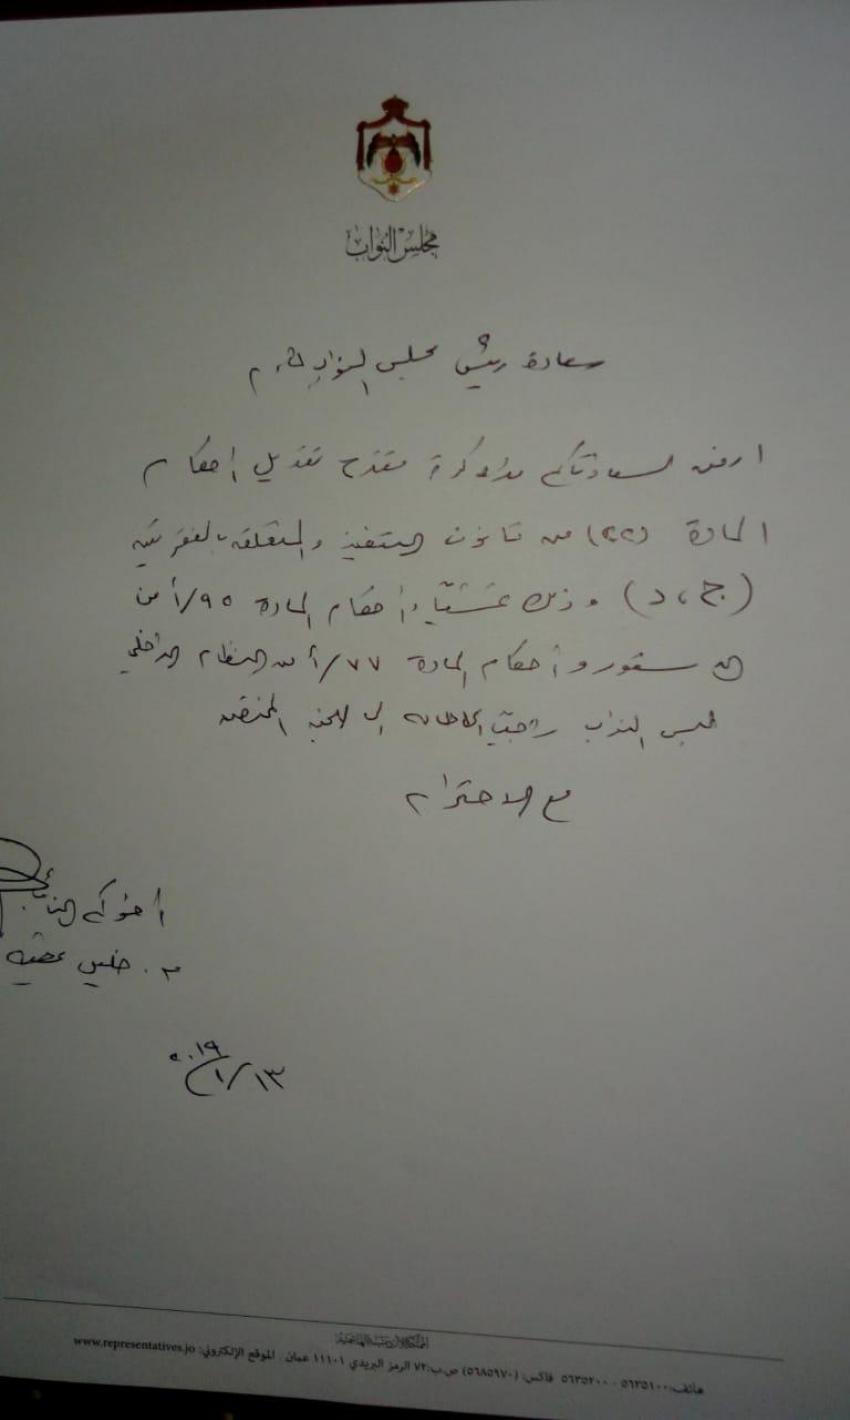 مجلس النواب
سعادة رئيس مجلس النواب
ارفق لسعادتكم مذكرة مقترح تعديل أحكام
المادة (٢٢) من قانون التنفيذ والمتعلقة بالفقرتين
(ج، د) وذلك عملاً بأحكام المادة ٩٥/أ من
الدستور وأحكام المادة ٧٧/أ من النظام الداخلي
لمجلس النواب راجياً احالته الى اللجنة المختصة
مع الاحترام
أخوكم النائب
م. خليل عطية
١٣/١/٢٠١٩
المملكة الأردنية الهاشمية
هاتف: ٥٦٣٥١٠٠ - ٥٦٣٥٢٠٠ فاكس: (٥٦٨٥٩٧٠) ص.ب: ٧٢ الرمز البريدي ١١١٠١ عمان . الموقع الإلكتروني: www.representatives.jo